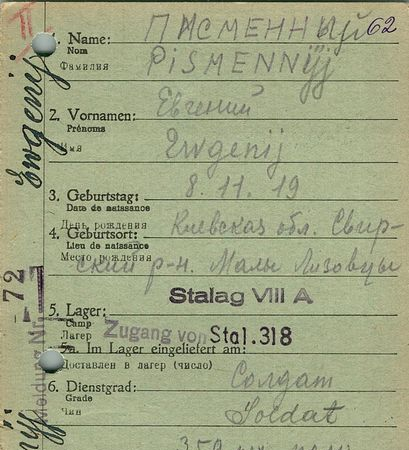 II
62
1. Name: ПИСМЕННЫЙ
Nom
Фамилия PiSMENNYJJ
2. Vornamen: Евгений
Prénoms
Имя Ewgenij
3. Geburtstag: 8.11.19
Date de naissance
День рождения Киевская обл. Свир-
4. Geburtsort:
Lieu de naissance
Место рождения ский р-н. Малы Лизовцы
Stalag VIII A
5. Lager:
Camp
Лагерь Zugang von Stal. 318
5a. Im Lager eingeliefert am:
Доставлен в лагер (число)
6. Dienstgrad: Солдат
Grade
Чин Soldat
Ewgenij
Meldung Nr. 72